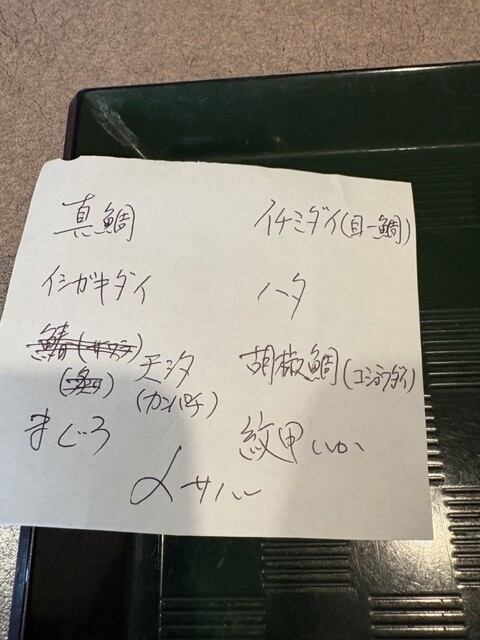 真鯛
イチミダイ(目一鯛)
イシガキダイ
ハタ
天シタ
(カンパチ)
胡椒鯛(コショウダイ)
まぐろ
紋甲いか
〆サバ